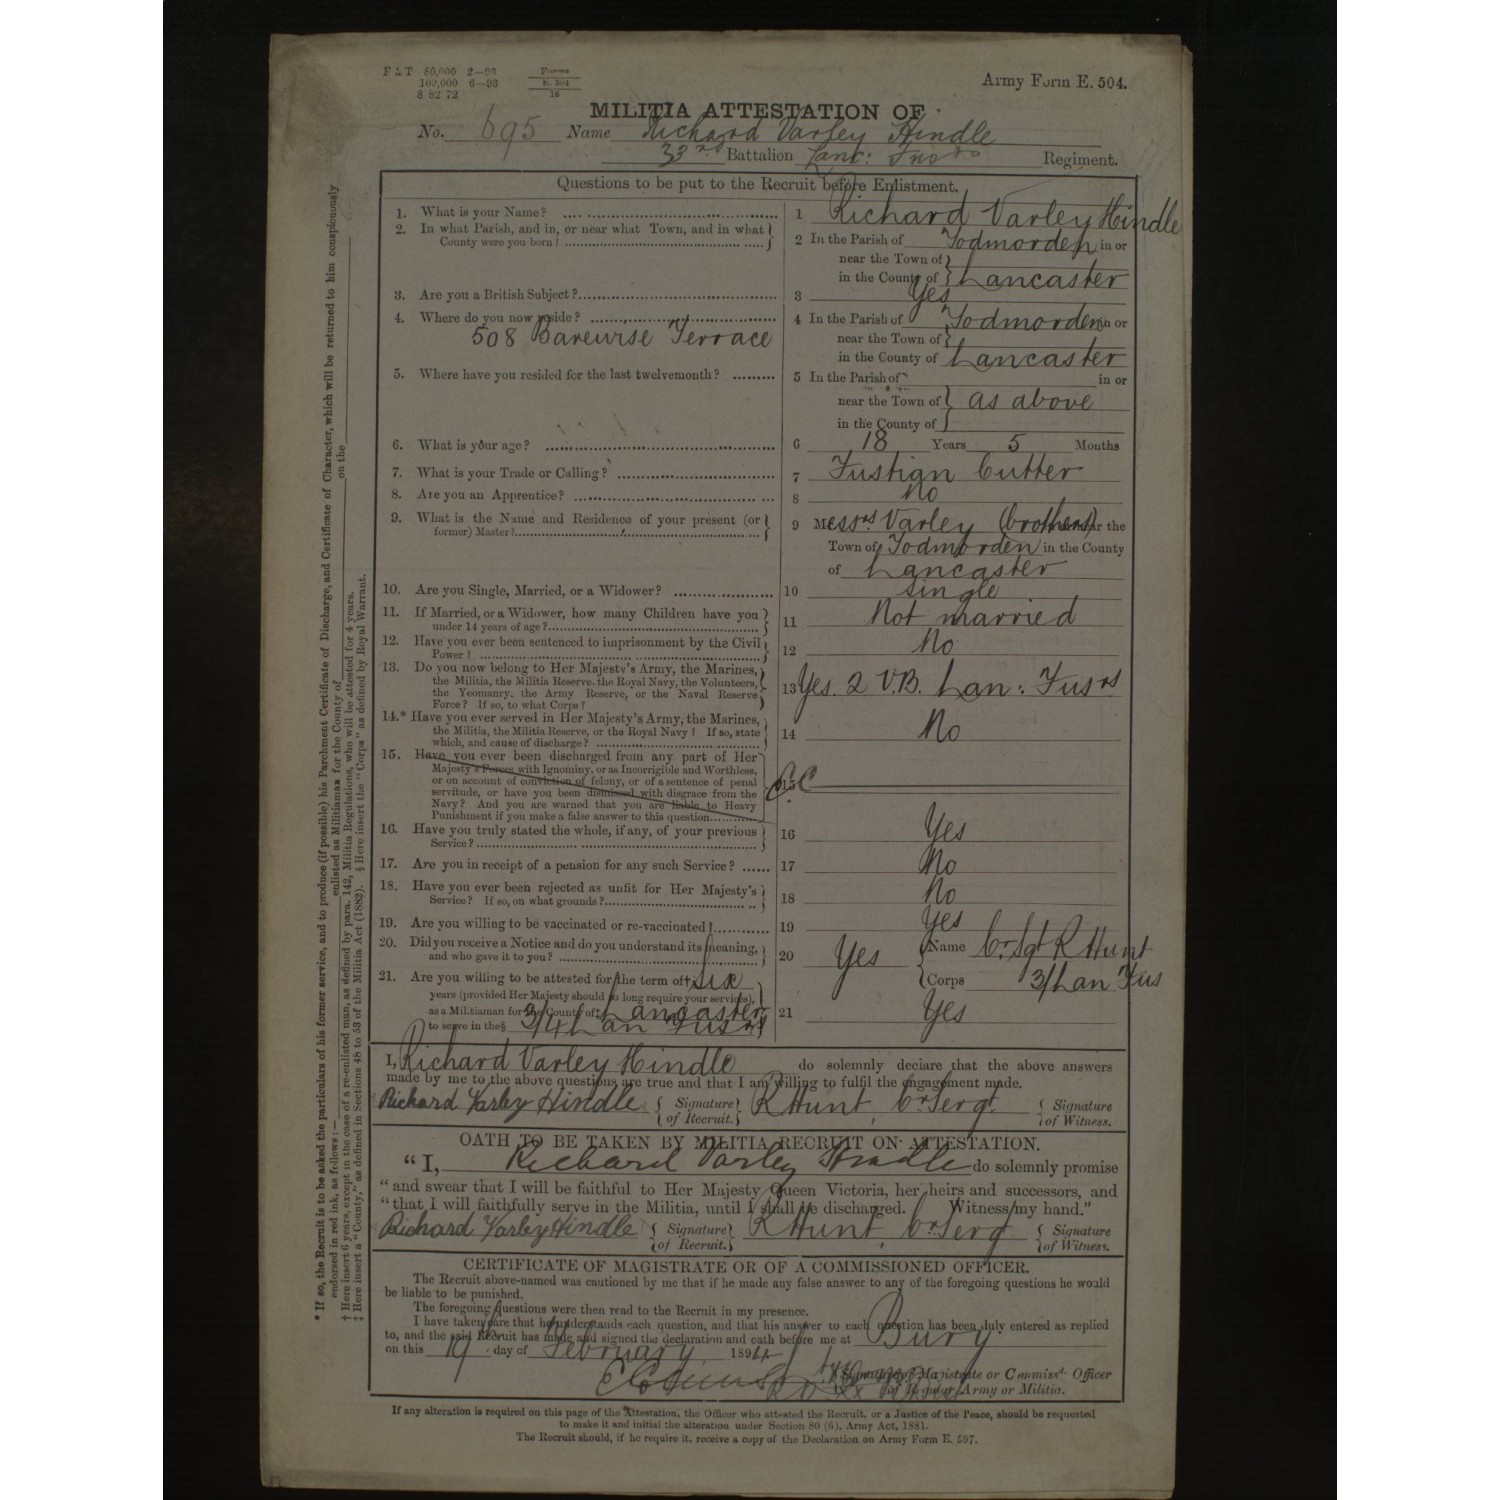 F & T 80,000 2—93
100,000 6—93
8 82 72
Forms
E. 504
16
Army Form E. 504.
MILITIA ATTESTATION OF
No. 695 Name Richard Varley Hindle
33rd Battalion Lanc: Fusrs Regiment.
Questions to be put to the Recruit before Enlistment.
1. What is your Name? 1 Richard Varley Hindle
2. In what Parish, and in, or near what Town, and in what County were you born? 2 In the Parish of Todmorden in or
near the Town of
in the County of Lancaster
3. Are you a British Subject? 3 Yes
4. Where do you now reside? 4 In the Parish of Todmorden in or
508 Barewise Terrace near the Town of
in the County of Lancaster
5. Where have you resided for the last twelvemonth? 5 In the Parish of in or
near the Town of as above
in the County of
6. What is your age? 6 18 Years 5 Months
7. What is your Trade or Calling? 7 Fustian Cutter
8. Are you an Apprentice? 8 No
9. What is the Name and Residence of your present (or former) Master? 9 Messrs Varley (brothers) near the
Town of Todmorden in the County
of Lancaster
10. Are you Single, Married, or a Widower? 10 single
11. If Married, or a Widower, how many Children have you under 14 years of age? 11 Not married
12. Have you ever been sentenced to imprisonment by the Civil Power? 12 No
13. Do you now belong to Her Majesty's Army, the Marines,
the Militia, the Militia Reserve, the Royal Navy, the Volunteers,
the Yeomanry, the Army Reserve, or the Naval Reserve
Force? If so, to what Corps? 13 Yes. 2 V.B. Lan: Fusrs
14.* Have you ever served in Her Majesty's Army, the Marines,
the Militia, the Militia Reserve, or the Royal Navy? If so, state
which, and cause of discharge? 14 No
15. Have you ever been discharged from any part of Her
Majesty's Forces with Ignominy, or as Incorrigible and Worthless,
or on account of conviction of felony, or of a sentence of penal
servitude, or have you been dismissed with disgrace from the
Navy? And you are warned that you are liable to Heavy
Punishment if you make a false answer to this question 15
16. Have you truly stated the whole, if any, of your previous Service? 16 Yes
17. Are you in receipt of a pension for any such Service? 17 No
18. Have you ever been rejected as unfit for Her Majesty's Service? If so, on what grounds? 18 No
19. Are you willing to be vaccinated or re-vaccinated? 19 Yes
20. Did you receive a Notice and do you understand its meaning, and who gave it to you? 20 Yes Name Cr. Sgt R Hunt
Corps 3/Lan Fus
21. Are you willing to be attested for the term of† Six
years (provided Her Majesty should so long require your services),
as a Militiaman for the County of‡ Lancaster
to serve in the§ 3/4 Lan Fusrs 21 Yes
I, Richard Varley Hindle do solemnly declare that the above answers
made by me to the above questions are true and that I am willing to fulfil the engagement made.
Richard Varley Hindle Signature of Recruit. R Hunt, Cr Sergt Signature of Witness.
OATH TO BE TAKEN BY MILITIA RECRUIT ON ATTESTATION.
"I, Richard Varley Hindle do solemnly promise
"and swear that I will be faithful to Her Majesty Queen Victoria, her heirs and successors, and
"that I will faithfully serve in the Militia, until I shall be discharged. Witness my hand."
Richard Varley Hindle Signature of Recruit. R Hunt, Cr Serg Signature of Witness.
CERTIFICATE OF MAGISTRATE OR OF A COMMISSIONED OFFICER.
The Recruit above-named was cautioned by me that if he made any false answer to any of the foregoing questions he would
be liable to be punished.
The foregoing questions were then read to the Recruit in my presence.
I have taken care that he understands each question, and that his answer to each question has been duly entered as replied
to, and the said Recruit has made and signed the declaration and oath before me at Bury
on this 19 day of February 1894
Signature of Magistrate or Commissd. Officer
of Regular Army or Militia.
If any alteration is required on this page of the Attestation, the Officer who attested the Recruit, or a Justice of the Peace, should be requested
to make it and initial the alteration under Section 80 (6), Army Act, 1881.
The Recruit should, if he require it, receive a copy of the Declaration on Army Form E. 597.
* If so, the Recruit is to be asked the particulars of his former service, and to produce (if possible) his Parchment Certificate of Discharge, and Certificate of Character, which will be returned to him conspicuously
endorsed in red ink, as follows:— enlisted as Militiaman for the County of on the
† Here insert 6 years, except in the case of a re-enlisted man, as defined by para. 142, Militia Regulations, who will be attested for 4 years.
‡ Here insert a "County," as defined in Sections 48 to 53 of the Militia Act (1882). § Here insert the "Corps" as defined by Royal Warrant.